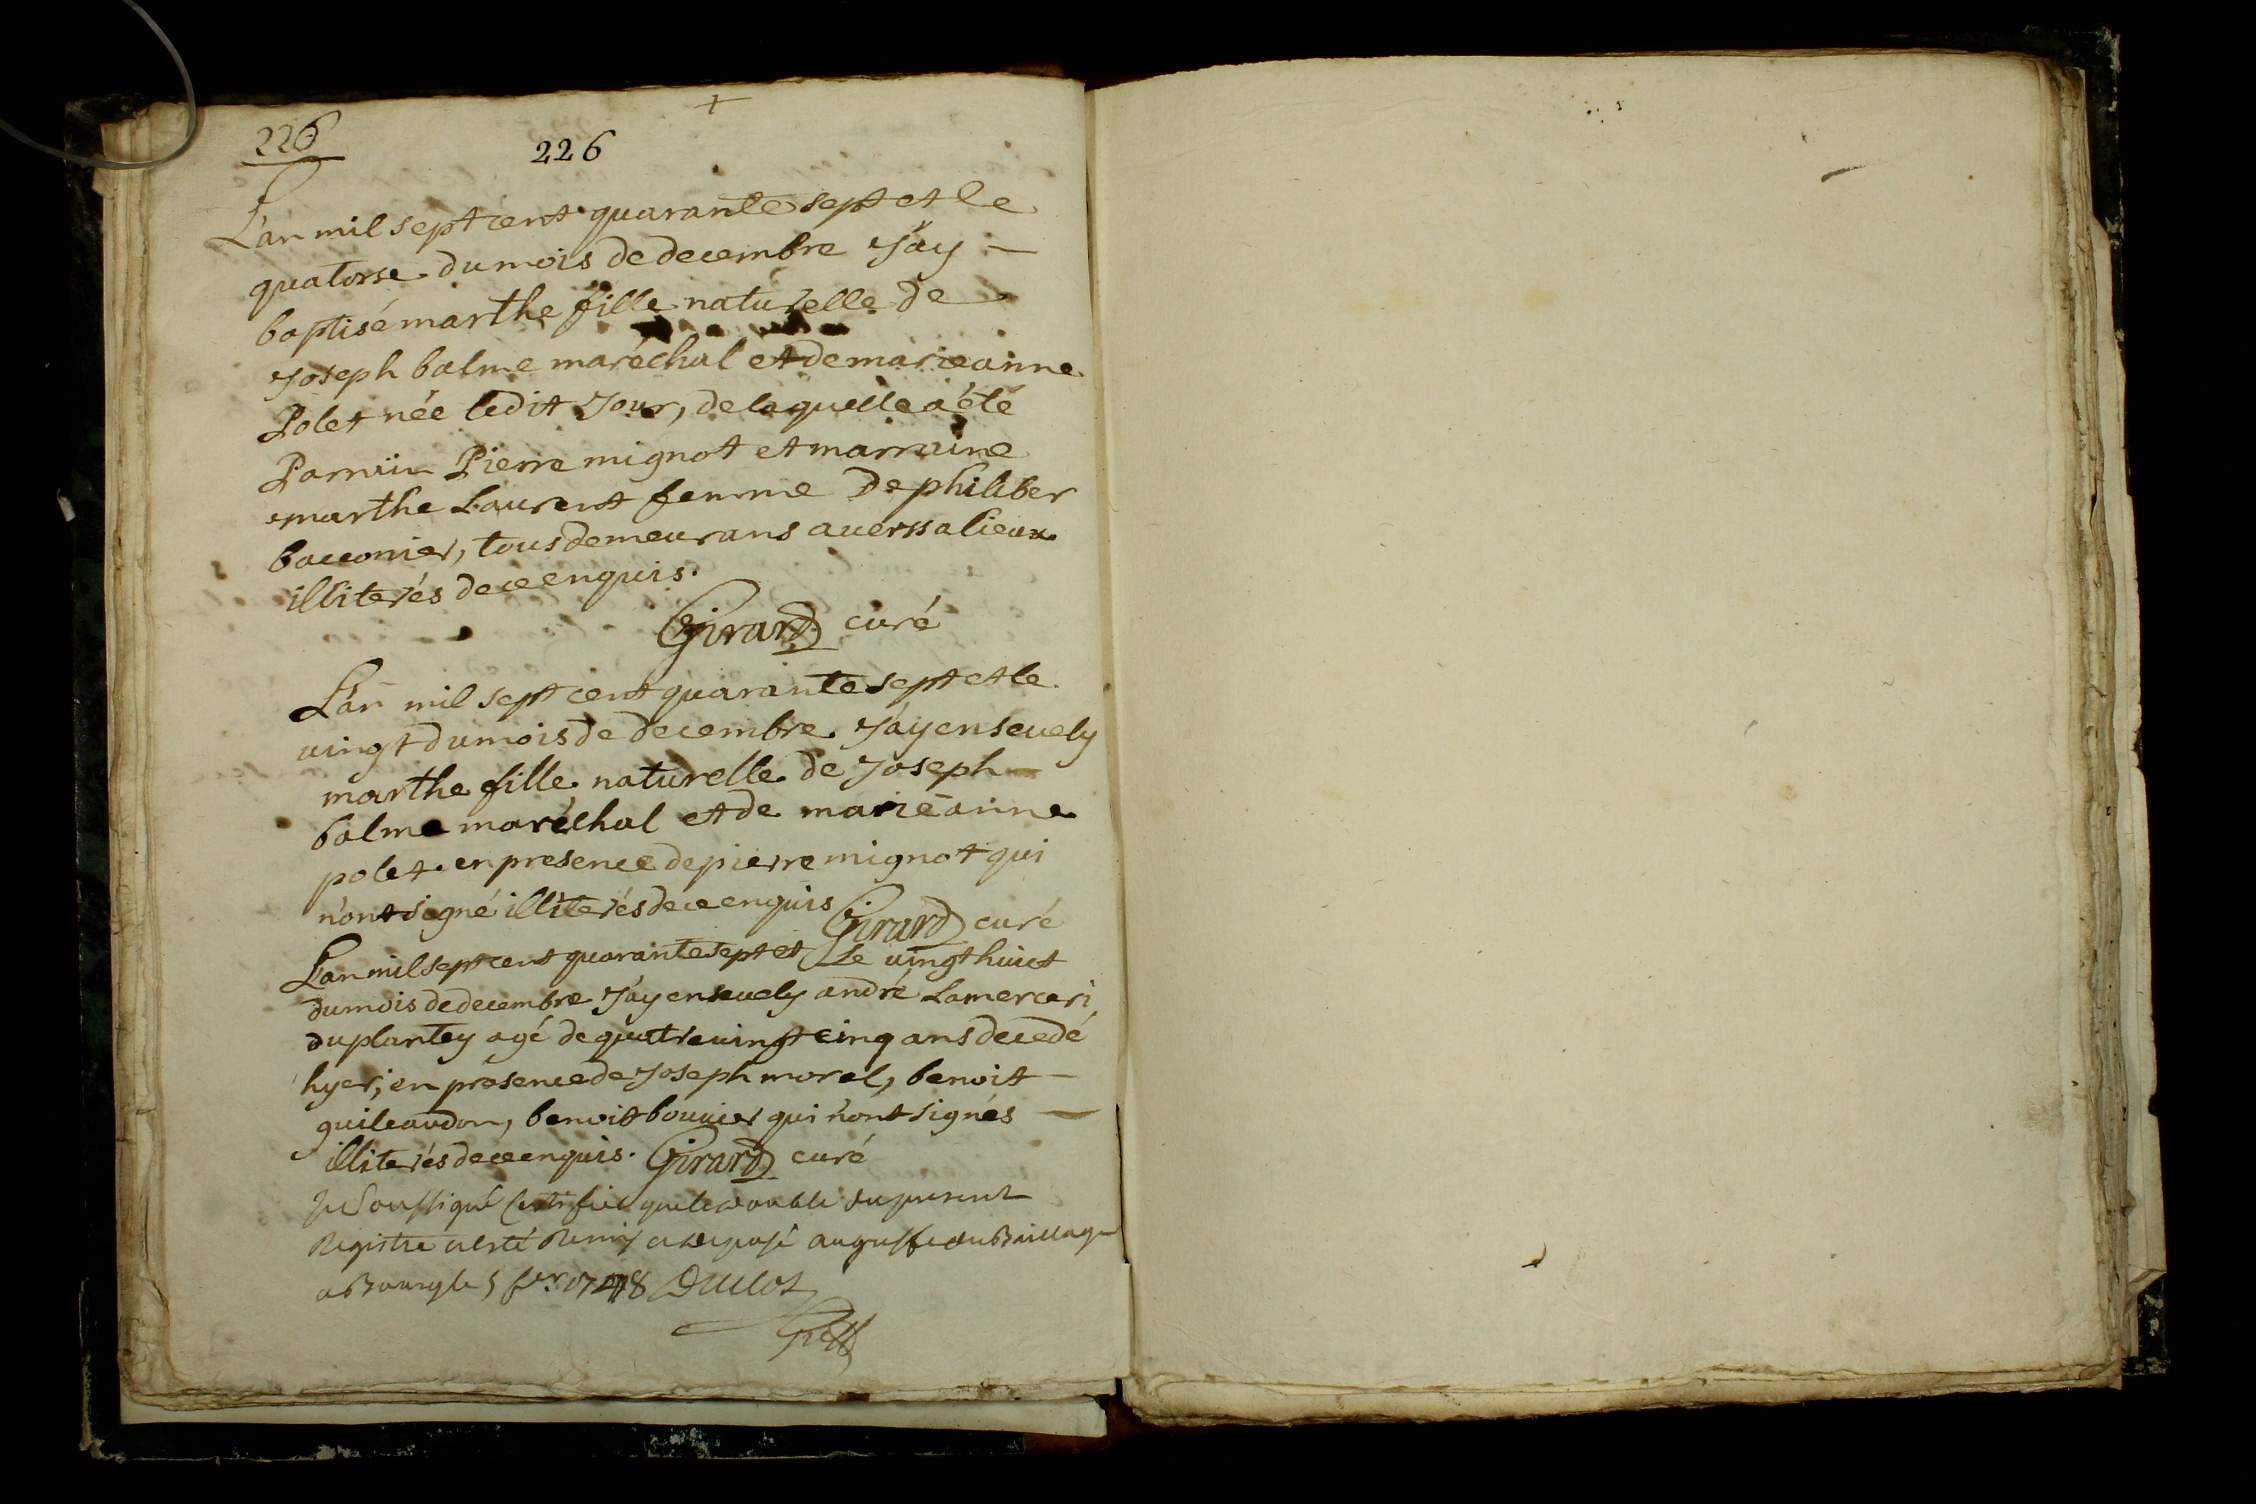 226
226
L'an mil sept cent quarante sept et le
quatorse du mois de decembre j'ay
baptisé marthe fille naturelle de
Joseph balme maréchal et de marieanne
Polet née ledit Jour, de laquelle a été
Parruin Pierre mignot et marraine
marthe Laurent femme de philiber
bacconier, tous demeurans a uerssalieux
illiterés de ce enquis.
Girard curé
L'an mil sept cent quarante sept et le
uingt du mois de decembre J'ay enseuely
marthe fille naturelle de Joseph
balme maréchal et de marieanne
polet en presence de pierre mignot qui
n'ont signé illiterés de ce enquis Girard curé
L'an mil sept cent quarante sept et Le uingt huict
du mois de decembre J'ay enseuely andré Lamerceri
du plantey agé de quatreuingt cinq ans decedé
hyer, en presence de Joseph morel, benoit
guileaudon, benoit bouuier qui n'ont signés
illiterés de ce enquis. Girard curé
Je Soussigné Certifie que le double du present
Registre a esté Remis et deposé au greffe du Baillage
a Bourg le 5 fer. 1748 Duclos